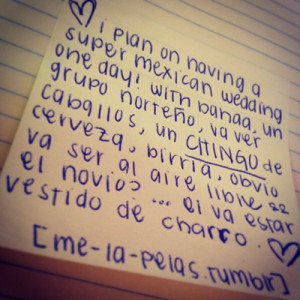 i plan on having a
super mexican wedding
one day! with banda, un
grupo norteño, va ver
caballos, un CHINGO de
cerveza, birria, obvio
va ser al aire libre
el novio? ... el va estar
vestido de charro.
[me-la-pelas.tumblr]